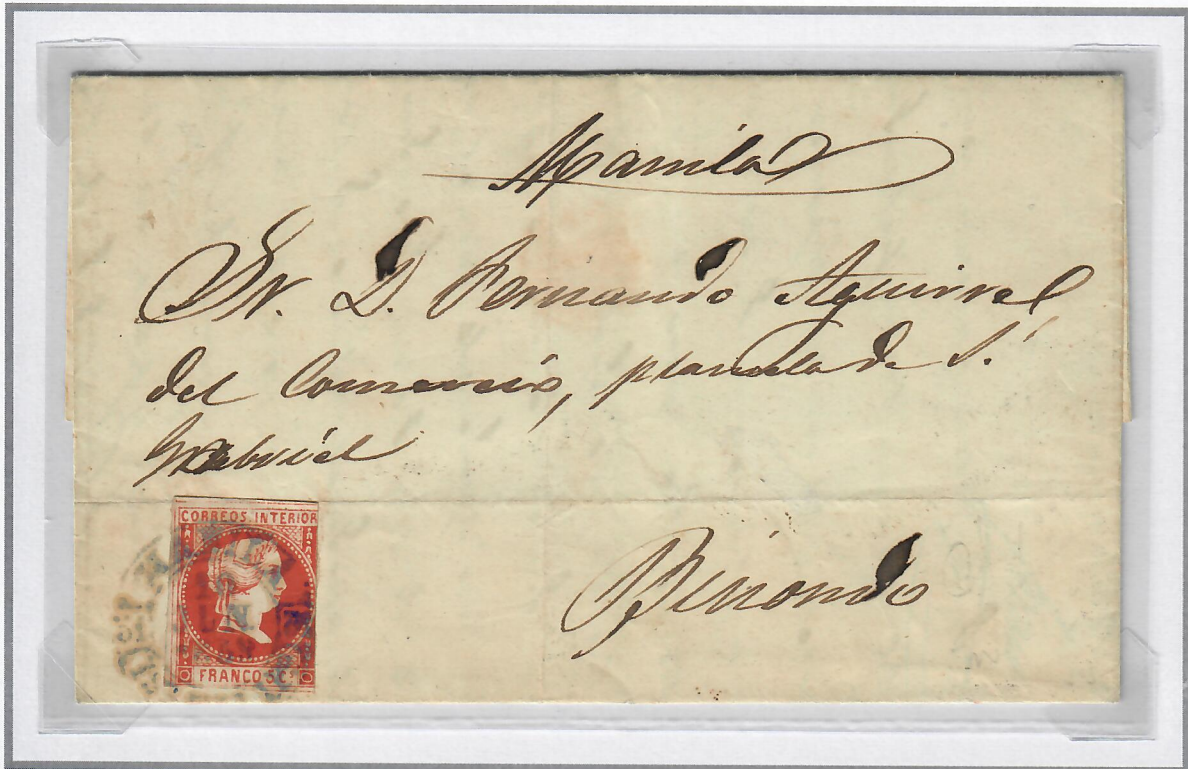 Manila
Sr. D. Fernando Aguirre
del Comercio, plazuela de S.
Gabriel
CORREOS INTERIOR
FRANCO 5 Cs
Binondo